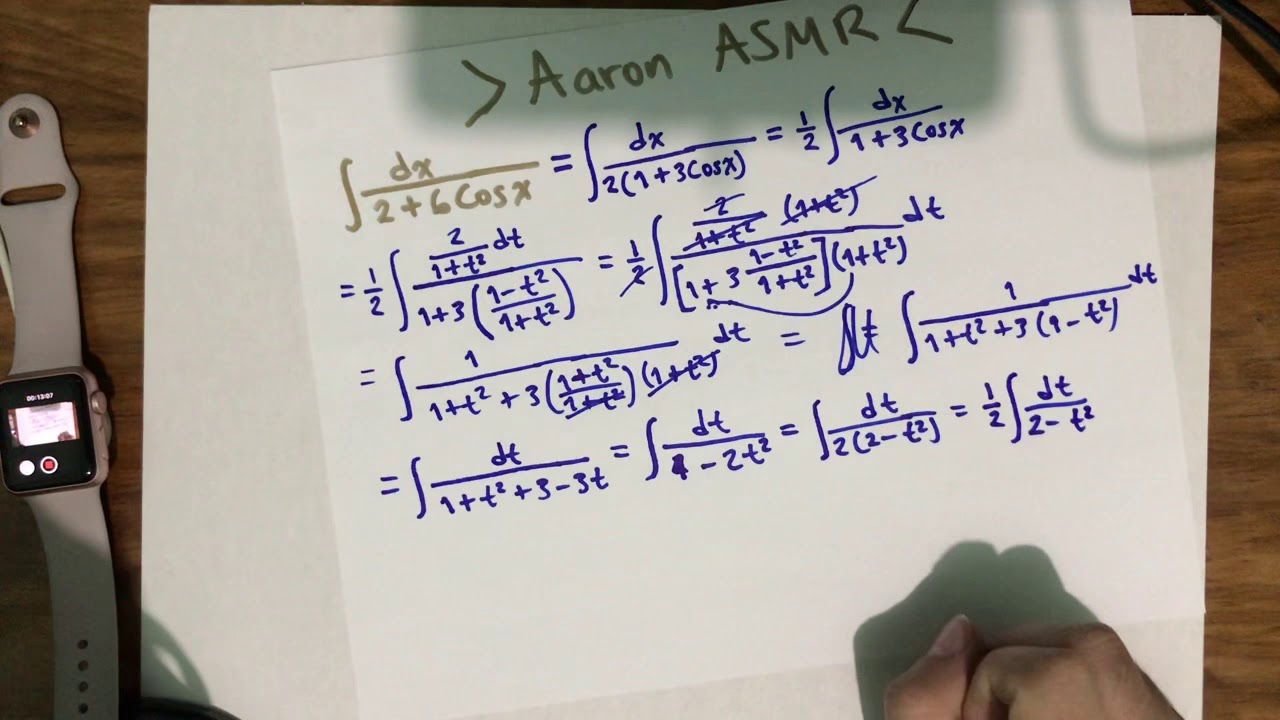 > Aaron ASMR <
∫ dx / (2 + 6 Cos x) = ∫ dx / (2(1 + 3Cosx)) = 1/2 ∫ dx / (1 + 3Cosx)
= 1/2 ∫ (2/(1+t²) dt) / (1+3((1-t²)/(1+t²))) = 1/2 ∫ (2/(1+t²) (1+t²)) / ([1 + 3 (1-t²)/(1+t²)](1+t²)) dt
= ∫ 1 / (1+t² + 3((1+t²)/(1+t²))(1+t²)) dt = ∫ 1 / (1+t²+3(1-t²)) dt
= ∫ dt / (1+t²+3-3t) = ∫ dt / (4 - 2t²) = ∫ dt / (2(2-t²)) = 1/2 ∫ dt / (2-t²)
00:13:07